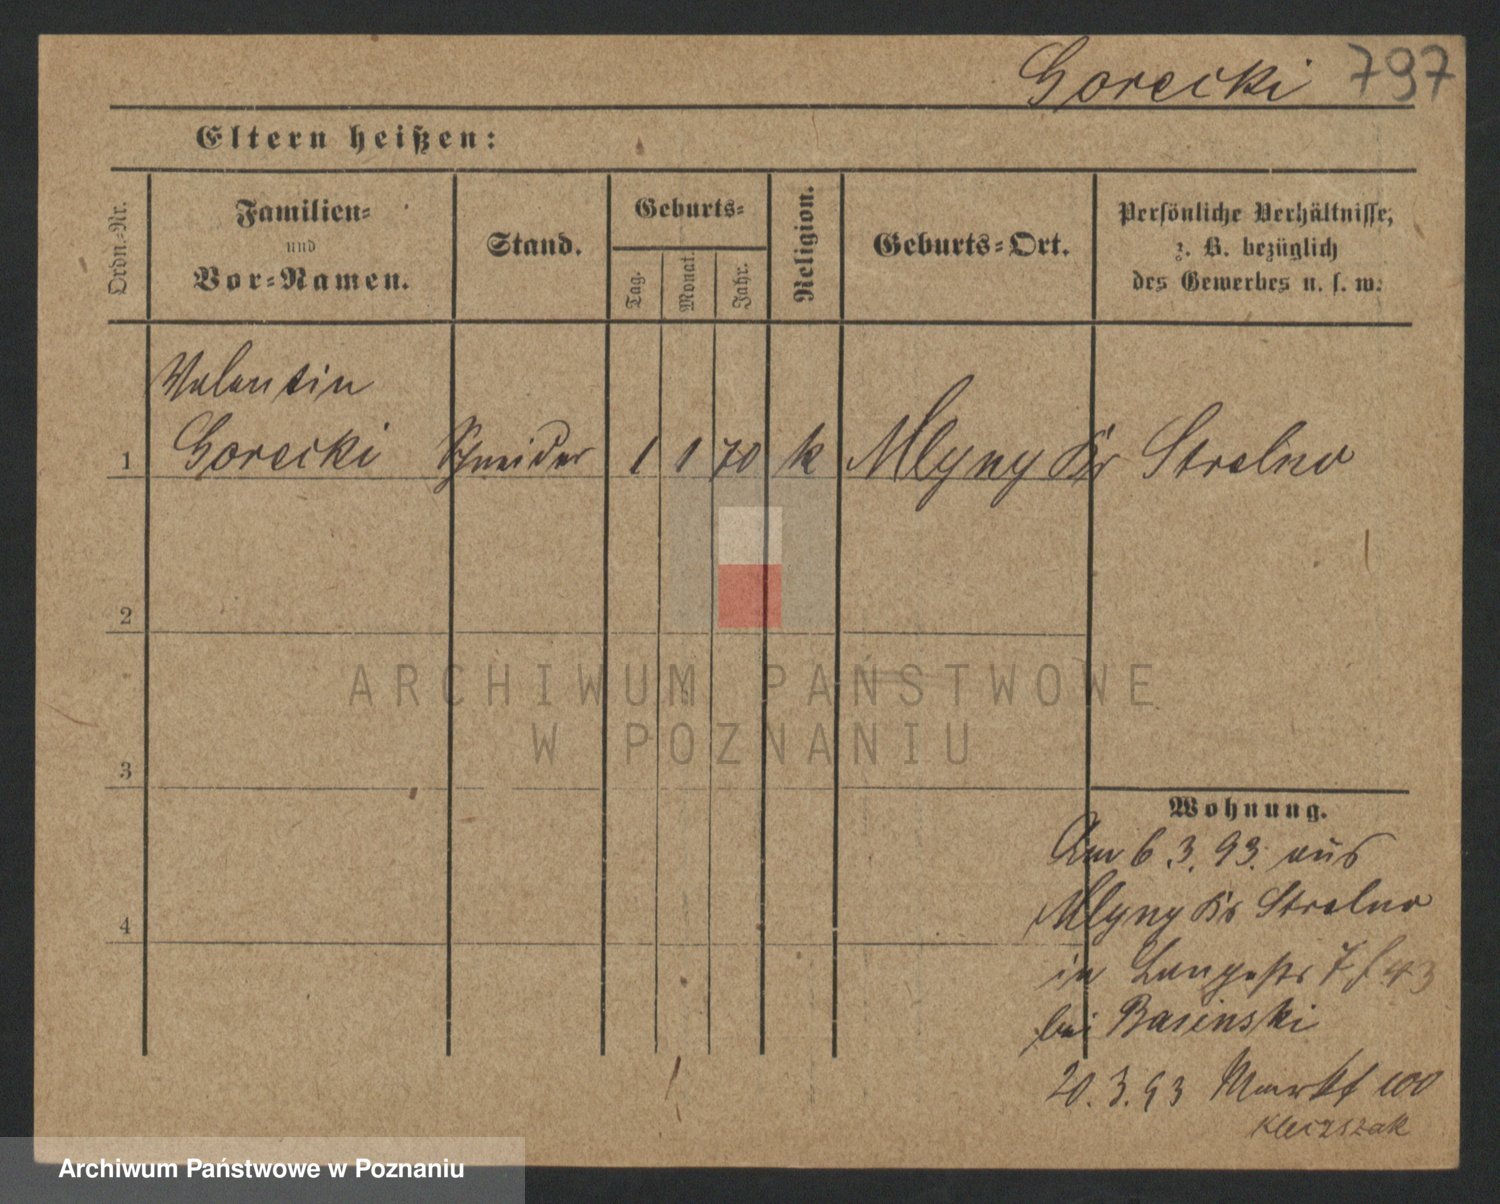 Gorecki 797
Eltern heißen:
Ordn.-Nr.
Familien-
und
Vor-Namen.
Stand.
Geburts-
Tag.
Monat.
Jahr.
Religion.
Geburts-Ort.
Persönliche Verhältnisse,
z. B. bezüglich
des Gewerbes u. s. w.
Valentin
1 Gorecki Schneider 1 1 70 k Mlyny Kr Strelno
2
3
4
Wohnung.
Am 6.3.93. aus
Mlyny Kr Strelno
in Langestr 7
bei Basinski
20.3.93 Markt 100
ARCHIWUM PAŃSTWOWE
W POZNANIU
Archiwum Państwowe w Poznaniu